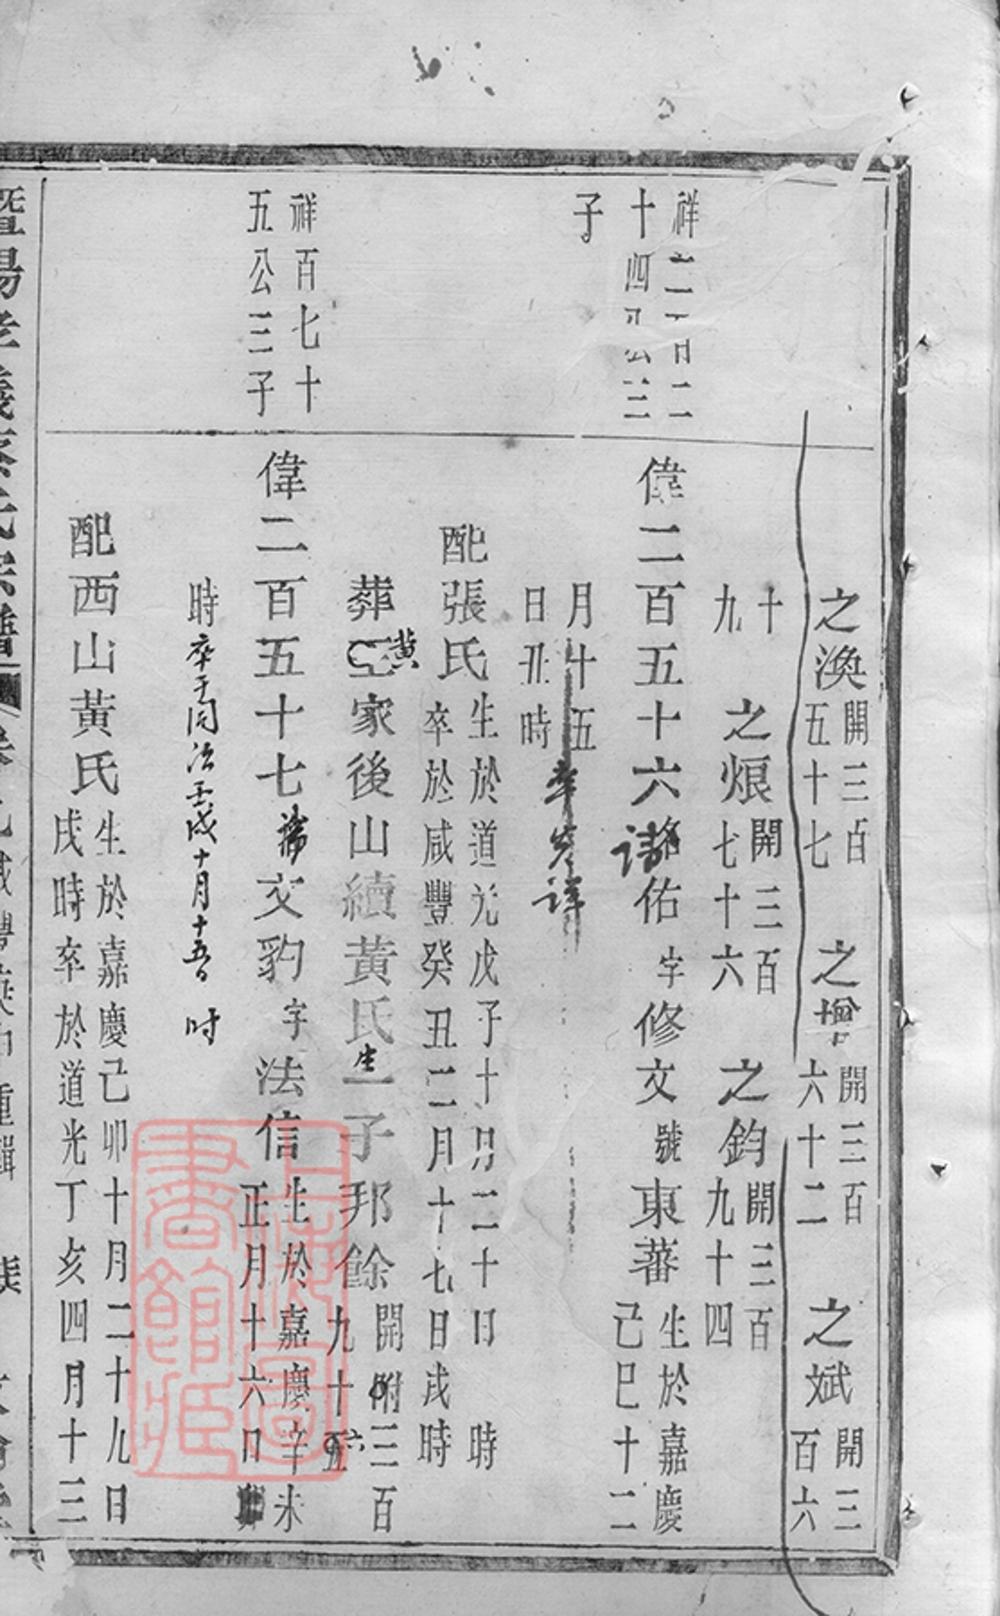 之渙開三百五十七 之增開三百六十二 之斌開三百六
十九 之烺開三百七十六 之鈞開三百九十四
祥二百二十四公三子
偉二百五十六 諱 佑字修文號東蕃生於嘉慶己巳十二
月十五日丑時 卒 詳
配張氏生於道光戊子十月二十日 時卒於咸豐癸丑二月十七日戌時
葬 黃家後山續黃氏生一子邦餘開附三百九十六
祥百七十五公三子
偉二百五十七 諱文豹字法信生於嘉慶辛未正月十六日
時卒于同治壬戌十月十五日 时
配西山黃氏生於嘉慶己卯十月二十九日戌時卒於道光丁亥四月十三
暨陽孝義 氏宗譜 咸豐 重輯
上海圖書館藏